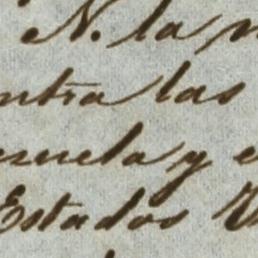 N. la
ntra las
zuela y e
Estados U